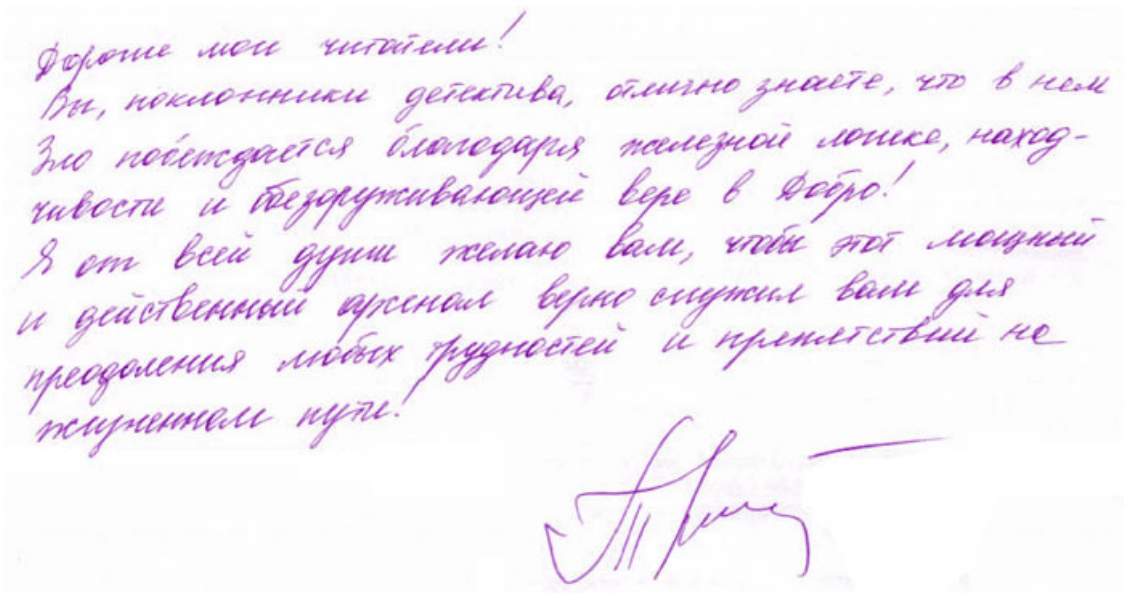 Дорогие мои читатели!
Вы, поклонники детектива, отлично знаете, что в нем
Зло побеждается благодаря железной логике, наход-
чивости и обезоруживающей вере в Добро!
Я от всей души желаю вам, чтобы этот мощный
и действенный арсенал верно служил вам для
преодоления любых трудностей и препятствий на
жизненном пути!